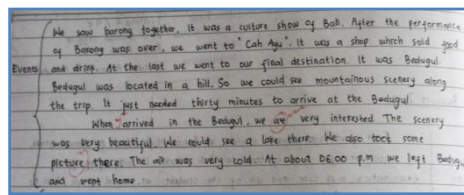 We saw barong together. It was a culture show of Bali. After the performance
of Barong was over, we went to "Cah Ayu". It was a shop which sold food
Events and drink. At the last we went to our final destination. It was Bedugul
Bedugul was located in a hill. So we could see mountainous scenery along
the trip. It just needed thirty minutes to arrive at the Bedugul.
When arrived in the Bedugul, we are very interested. The scenery
was very beautiful. We could see a lake there. We also took some
picture there. The air was very cold. At about 06.00 p.m. we left Bedugul
and went home.